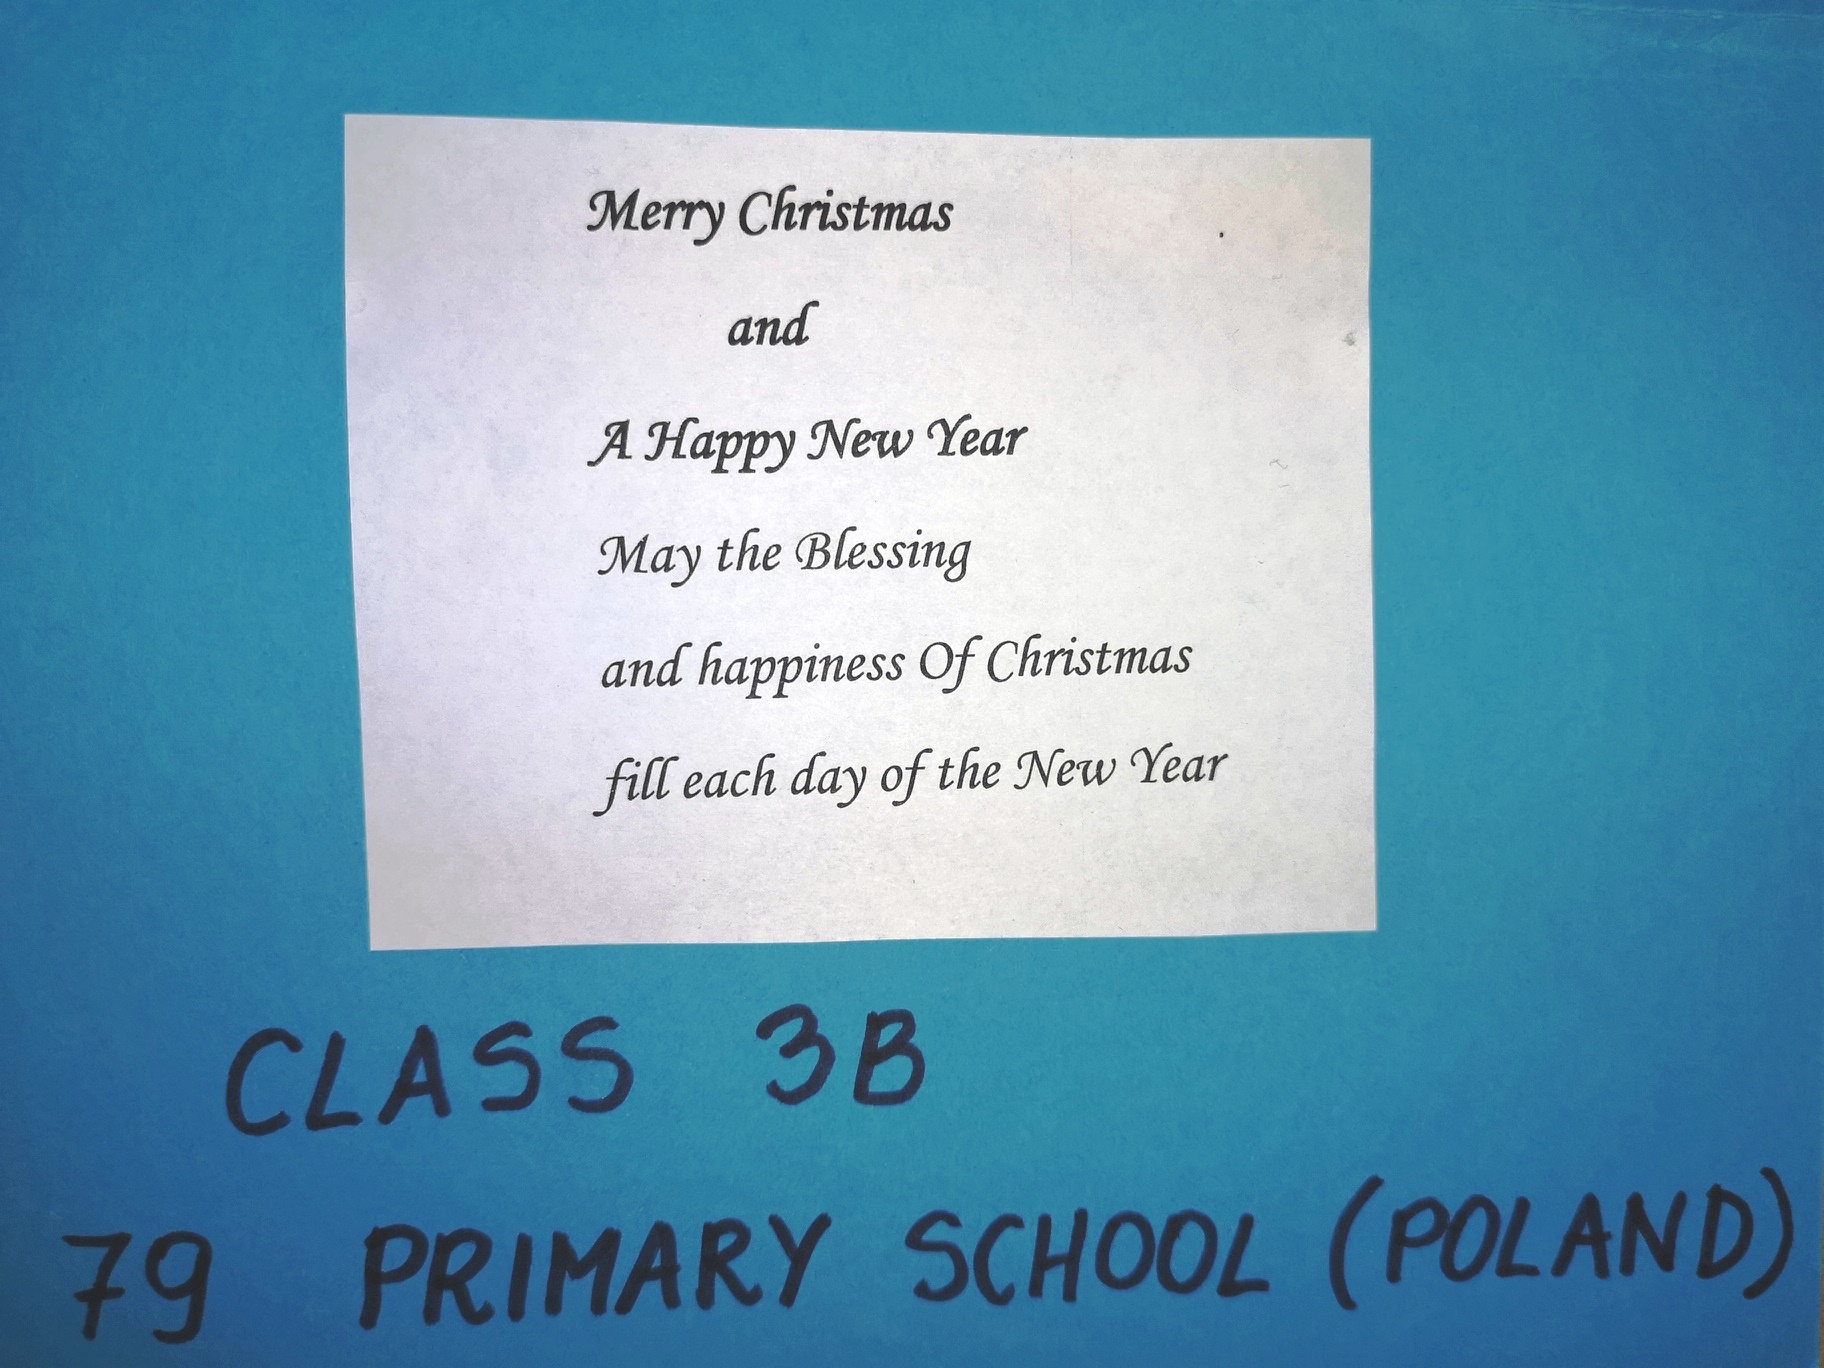 Merry Christmas
and
A Happy New Year
May the Blessing
and happiness Of Christmas
fill each day of the New Year
CLASS 3B
79 PRIMARY SCHOOL (POLAND)